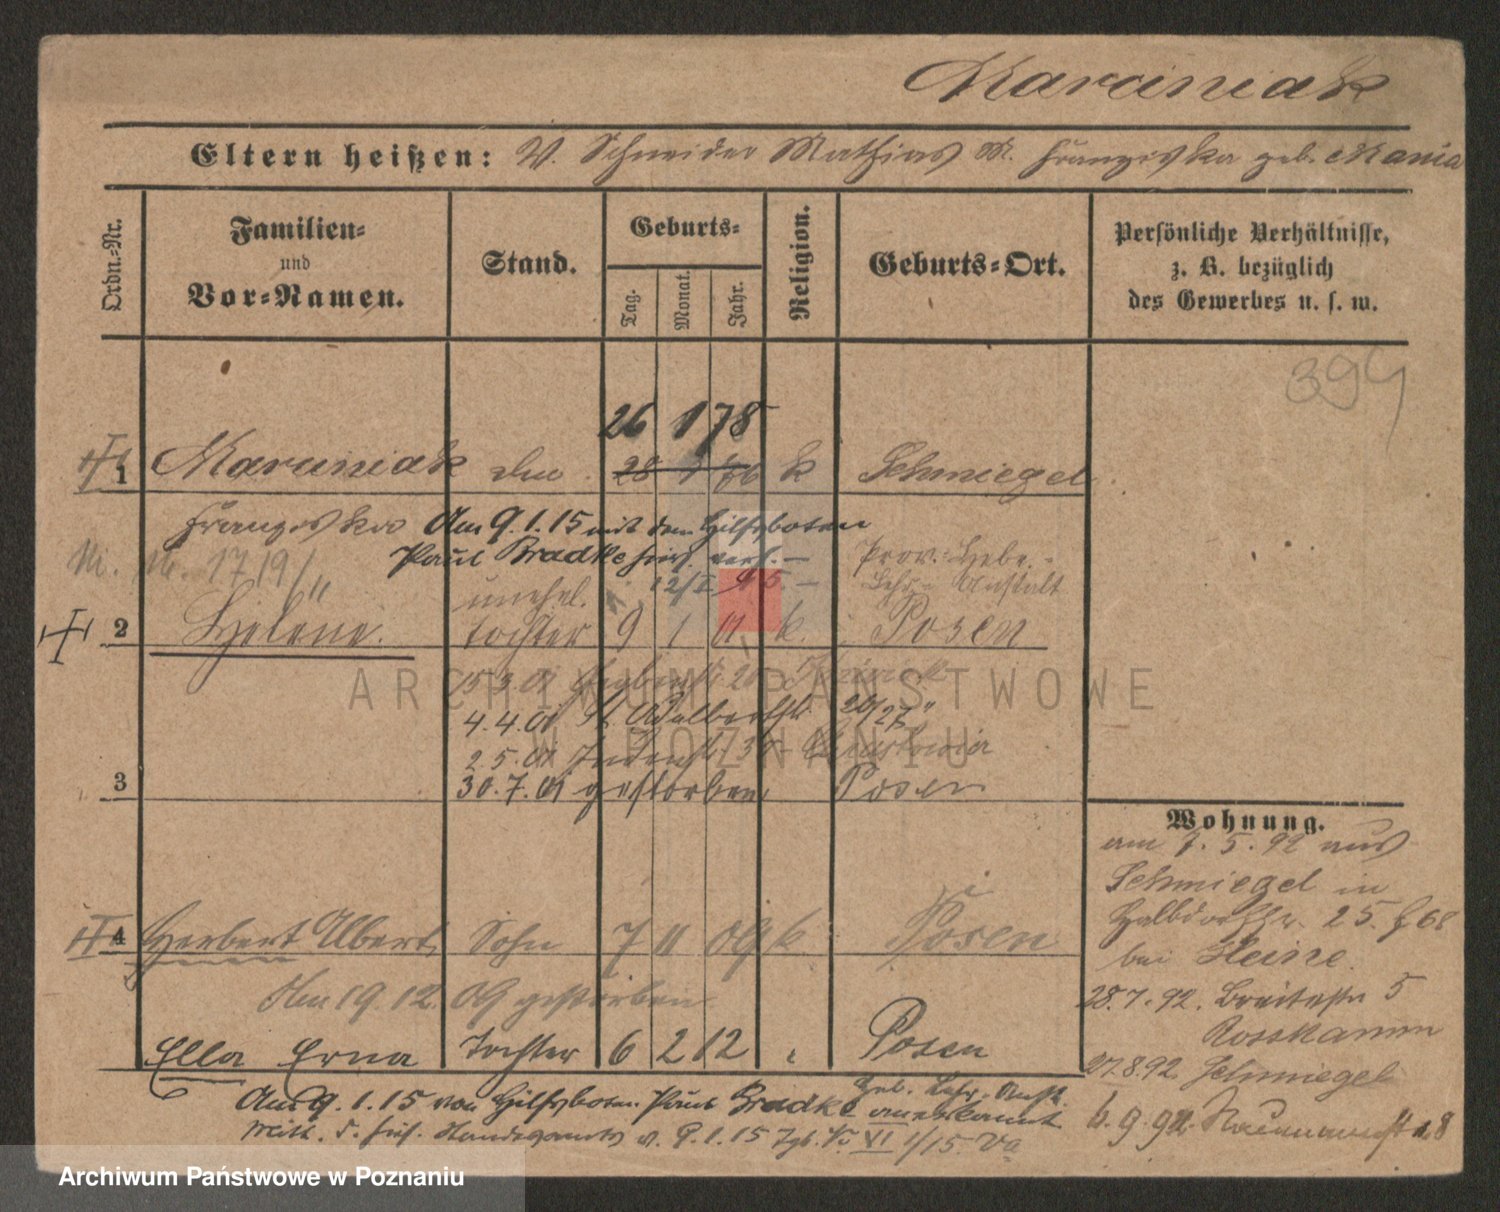 Marciniak
Eltern heißen: V. Schneider Mathias M. Franziska geb. Mania
Ordn.-Nr.
Familien-
und
Vor-Namen.
Stand.
Geburts-
Tag.
Monat.
Jahr.
Religion.
Geburts-Ort.
Persönliche Verhältnisse,
z. B. bezüglich
des Gewerbes u. s. w.
394
26 1 78
1 Marciniak 28 1 76 k Schmiegel
Franziska Am 9.1.15 mit dem Hilfsboten
Paul Bradke verh. —
1719/11 Prov. Hebe.-
unehel. 12/I 15. — Lehr- Anstalt
2 Helene. tochter 9 1 01 k. Posen
15 3 01
4.4.01 St Adalbertstr. 26/27
2.5.01
3 30.7.01 gestorben Posen
Wohnung.
am 7.5.92 aus
Schmiegel in
Halbdorfstr. 25.
4 Herbert Albert Sohn 7 11 09 k Posen
bei Heine.
Am 19.12. 09 gestorben
28.7.92. Breitestr 5
Rosskamm
Ella Erna Tochter 6 2 12 Posen
27.8.92 Schmiegel
Am 9.1.15 von Hilfsboten Paul Bradke anerkannt
Heb. Lehr. Anst.
Mitt. d. hies. Standesamts v. 9.1.15 Tgb. No VI 1/15.
6.9.92
ARCHIWUM PAŃSTWOWE
W POZNANIU
Archiwum Państwowe w Poznaniu